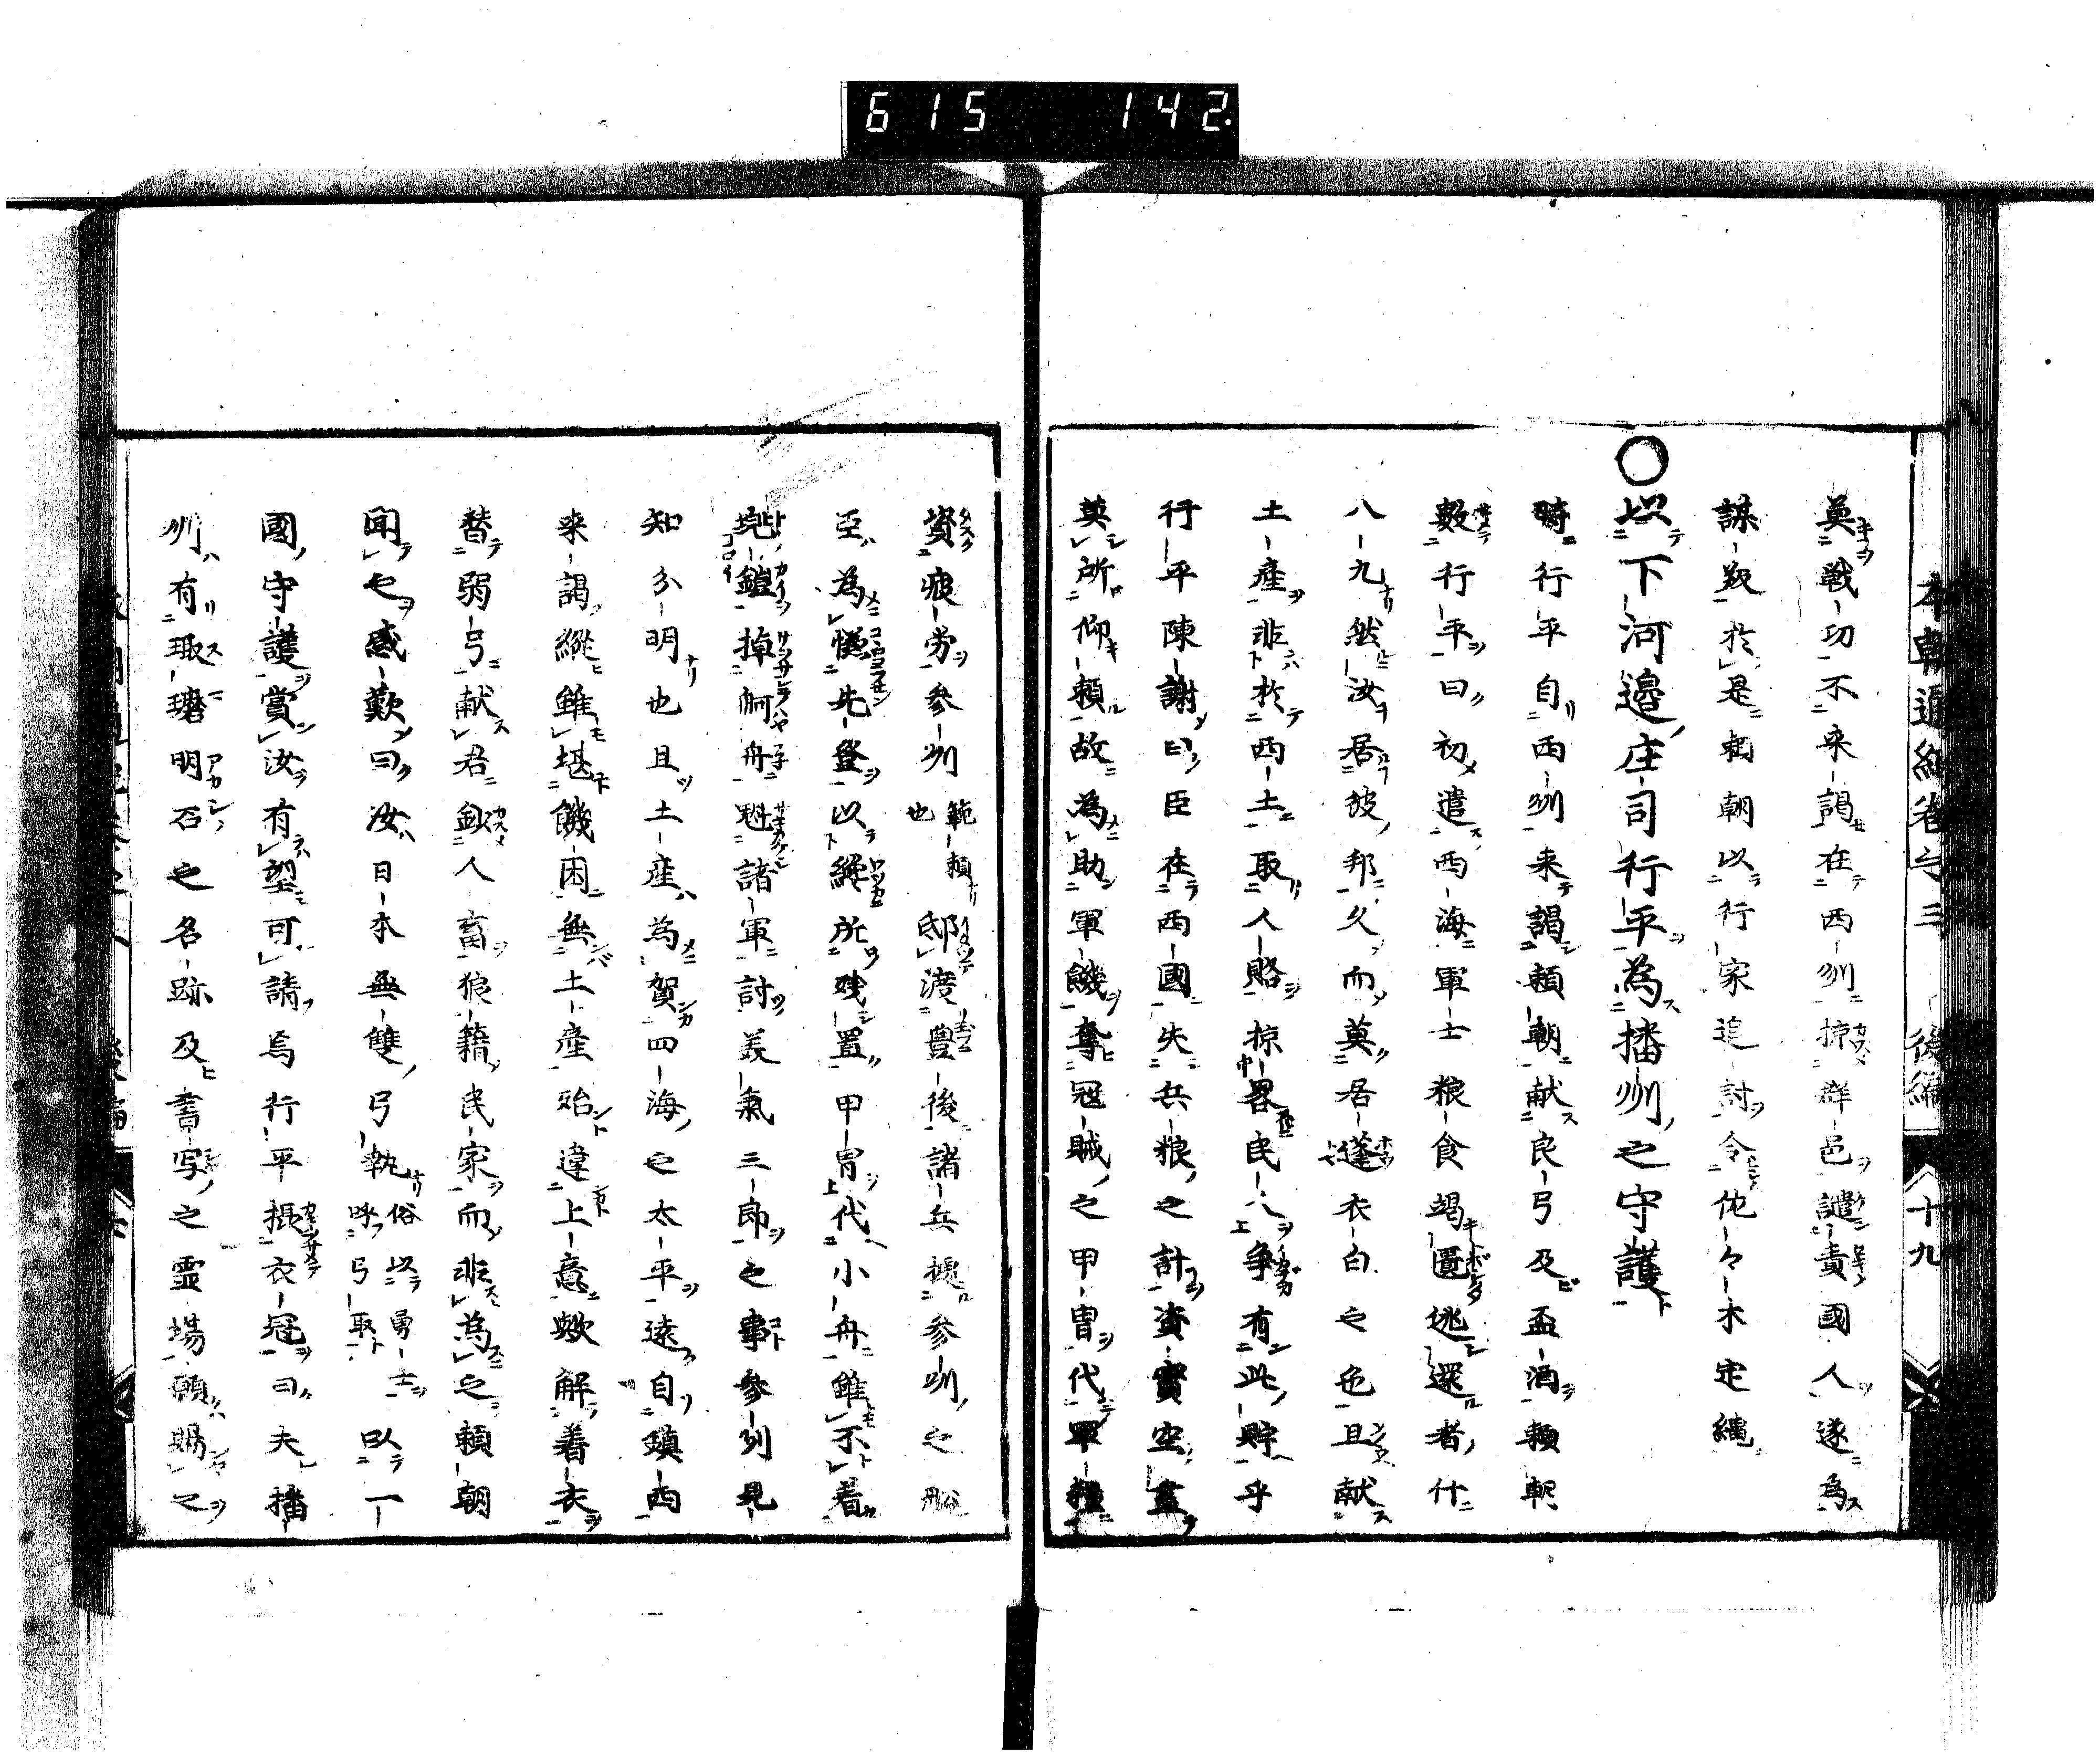 615 142
本朝通紀卷之三 後編 十九
莫戦功不来謁在西州掠群邑譴責国人遂為
謀叛於是頼朝以行家追討令佐々木定縄
○以下河邊庄司行平為播州之守護
時行平自西州来謁頼朝献良弓及盃酒頼朝
數行平曰初遣西海軍士粮食竭匱逃還者什
八九然汝居彼邦久而莫居蓬衣白之色且献
土産非於西土取人賂掠畧民八争有此貯乎
行平陳謝曰臣在西國失兵粮之計資寳空盡
莫所仰頼故為助軍饑奪冦賊之甲冑代軍粮
資疲労参州範頼也邸渡豊後諸兵襯参州之舩
臣為慊先登以纔所残置甲冑代小舟雖不着
鎧掉舸舟魁諸軍討美氣三郎之事参州見
知分明也且土産為賀四海之太平遠自鎮西
来謁縦雖堪饑困無土産殆違上意歟解着衣
替弱弓献君鈔人畜狼籍民家而非為之頼朝
聞之感歎曰汝日本無雙弓執俗以勇士呼弓取以一
國守護賞汝有望可請焉行平摂衣冠曰夫播
州有瑕瑾明石之名跡及書写之霊場願賜之